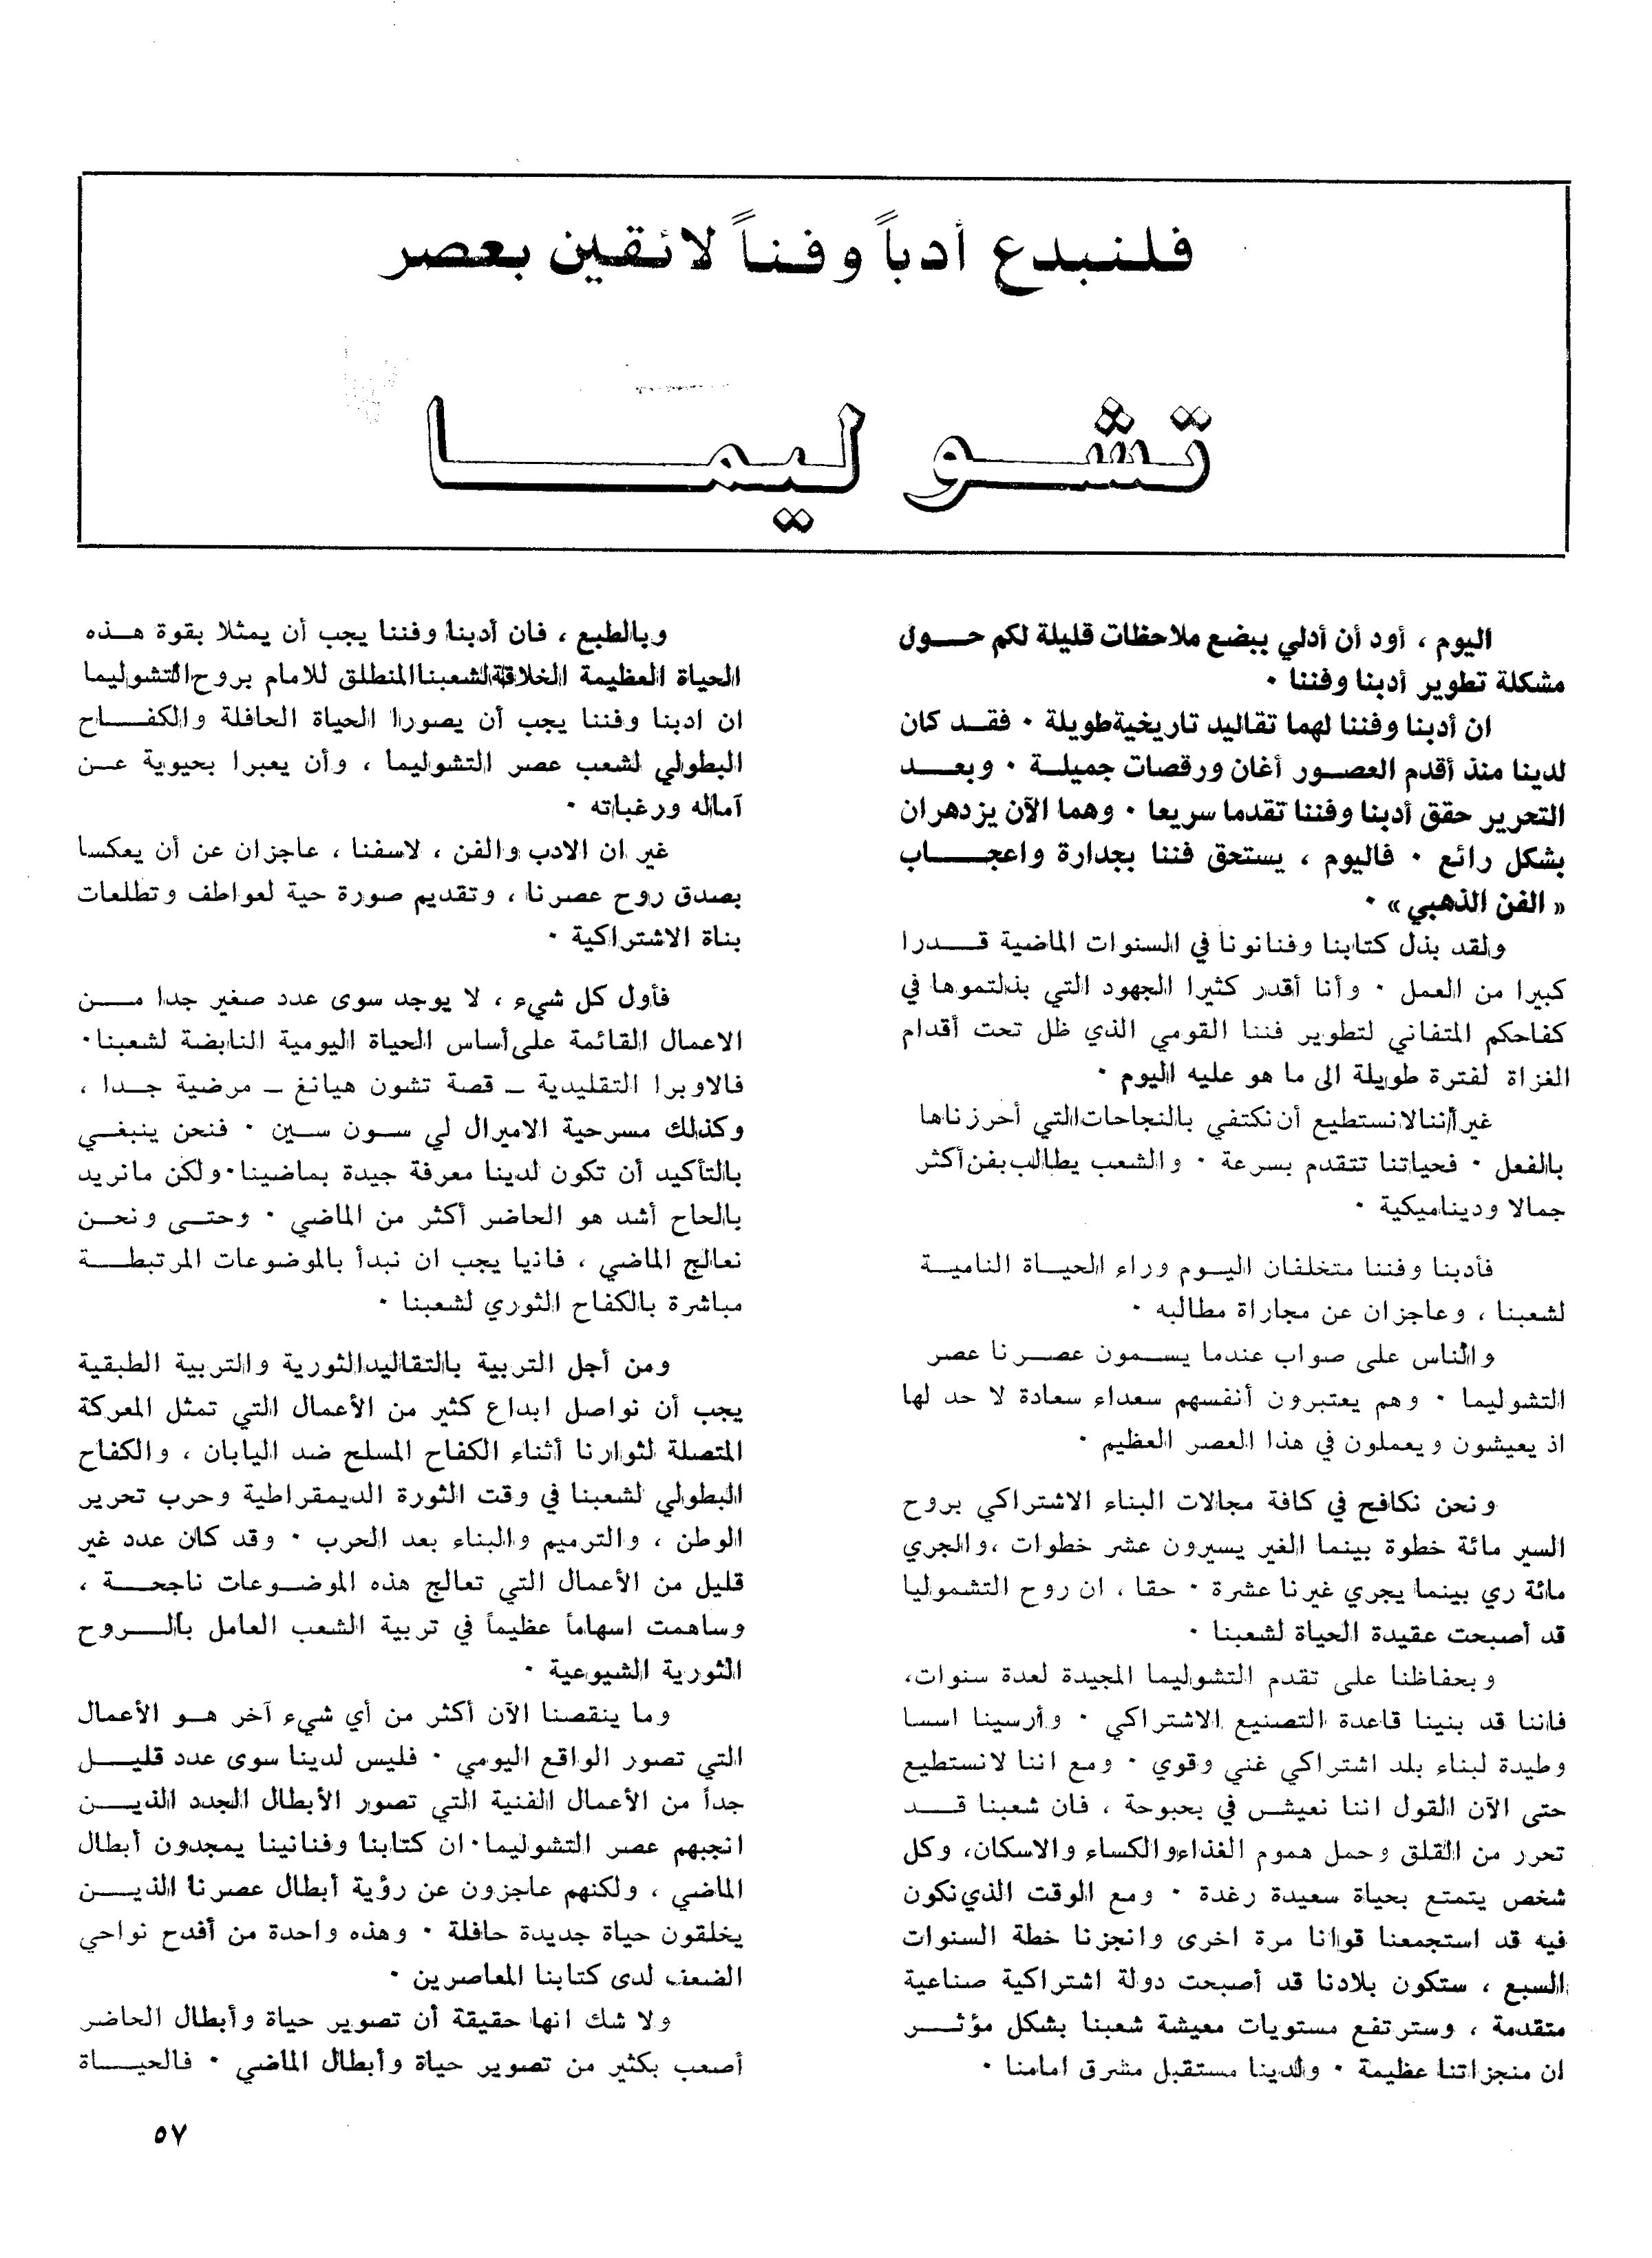 فلنبدع أدباً وفناً لائقين بعصر
تشوليما
اليوم ، أود أن أدلي ببضع ملاحظات قليلة لكم حول
مشكلة تطوير أدبنا وفننا ٠
ان أدبنا وفننا لهما تقاليد تاريخية طويلة ٠ فقد كان
لدينا منذ أقدم العصور أغان ورقصات جميلة ٠ وبعد
التحرير حقق أدبنا وفننا تقدما سريعا ٠ وهما الآن يزدهران
بشكل رائع ٠ فاليوم ، يستحق فننا بجدارة واعجاب
« الفن الذهبي » ٠
ولقد بذل كتابنا وفنانونا في السنوات الماضية قدرا
كبيرا من العمل ٠ وأنا أقدر كثيرا الجهود التي بذلتموها في
كفاحكم المتفاني لتطوير فننا القومي الذي ظل تحت أقدام
الغزاة لفترة طويلة الى ما هو عليه اليوم ٠
غير أننا لا نستطيع أن نكتفي بالنجاحات التي أحرزناها
بالفعل ٠ فحياتنا تتقدم بسرعة ٠ والشعب يطالب بفن أكثر
جمالا وديناميكية ٠
فأدبنا وفننا متخلفان اليوم وراء الحياة النامية
لشعبنا ، وعاجزان عن مجاراة مطالبه ٠
والناس على صواب عندما يسمون عصرنا عصر
التشوليما ٠ وهم يعتبرون أنفسهم سعداء سعادة لا حد لها
اذ يعيشون ويعملون في هذا العصر العظيم ٠
ونحن نكافح في كافة مجالات البناء الاشتراكي بروح
السير مائة خطوة بينما الغير يسيرون عشر خطوات ، والجري
مائة ري بينما يجري غيرنا عشرة ٠ حقا ، ان روح التشموليا
قد أصبحت عقيدة الحياة لشعبنا ٠
وبحفاظنا على تقدم التشوليما المجيدة لعدة سنوات،
فاننا قد بنينا قاعدة التصنيع الاشتراكي ٠ وأرسينا اسسا
وطيدة لبناء بلد اشتراكي غني وقوي ٠ ومع اننا لانستطيع
حتى الآن القول اننا نعيش في بحبوحة ، فان شعبنا قد
تحرر من القلق وحمل هموم الغذاء والكساء والاسكان، وكل
شخص يتمتع بحياة سعيدة رغدة ٠ ومع الوقت الذي نكون
فيه قد استجمعنا قوانا مرة اخرى وانجزنا خطة السنوات
السبع ، ستكون بلادنا قد أصبحت دولة اشتراكية صناعية
متقدمة ، وسترتفع مستويات معيشة شعبنا بشكل مؤثر
ان منجزاتنا عظيمة ٠ ولدينا مستقبل مشرق امامنا ٠
وبالطبع ، فان أدبنا وفننا يجب أن يمثلا بقوة هذه
الحياة العظيمة الخلاقة لشعبنا المنطلق للامام بروح التشوليما
ان ادبنا وفننا يجب أن يصورا الحياة الحافلة والكفاح
البطولي لشعب عصر التشوليما ، وأن يعبرا بحيوية عن
آماله ورغباته ٠
غير ان الادب والفن ، لاسفنا ، عاجزان عن أن يعكسا
بصدق روح عصرنا ، وتقديم صورة حية لعواطف وتطلعات
بناة الاشتراكية ٠
فأول كل شيء ، لا يوجد سوى عدد صغير جدا من
الاعمال القائمة على أساس الحياة اليومية النابضة لشعبنا٠
فالاوبرا التقليدية ــ قصة تشون هيانغ ــ مرضية جدا ،
وكذلك مسرحية الاميرال لي سون سين ٠ فنحن ينبغي
بالتأكيد أن تكون لدينا معرفة جيدة بماضينا٠ ولكن مانريد
بالحاح أشد هو الحاضر أكثر من الماضي ٠ وحتى ونحن
نعالج الماضي ، فانيا يجب ان نبدأ بالموضوعات المرتبطة
مباشرة بالكفاح الثوري لشعبنا ٠
ومن أجل التربية بالتقاليد الثورية والتربية الطبقية
يجب أن نواصل ابداع كثير من الأعمال التي تمثل المعركة
المتصلة لثوارنا أثناء الكفاح المسلح ضد اليابان ، والكفاح
البطولي لشعبنا في وقت الثورة الديمقراطية وحرب تحرير
الوطن ، والترميم والبناء بعد الحرب ٠ وقد كان عدد غير
قليل من الأعمال التي تعالج هذه الموضوعات ناجحة ،
وساهمت اسهاماً عظيماً في تربية الشعب العامل بالروح
الثورية الشيوعية ٠
وما ينقصنا الآن أكثر من أي شيء آخر هو الأعمال
التي تصور الواقع اليومي ٠ فليس لدينا سوى عدد قليل
جداً من الأعمال الفنية التي تصور الأبطال الجدد الذين
انجبهم عصر التشوليما٠ ان كتابنا وفنانينا يمجدون أبطال
الماضي ، ولكنهم عاجزون عن رؤية أبطال عصرنا الذين
يخلقون حياة جديدة حافلة ٠ وهذه واحدة من أفدح نواحي
الضعف لدى كتابنا المعاصرين ٠
ولا شك انها حقيقة أن تصوير حياة وأبطال الحاضر
أصعب بكثير من تصوير حياة وأبطال الماضي ٠ فالحياة
٥٧